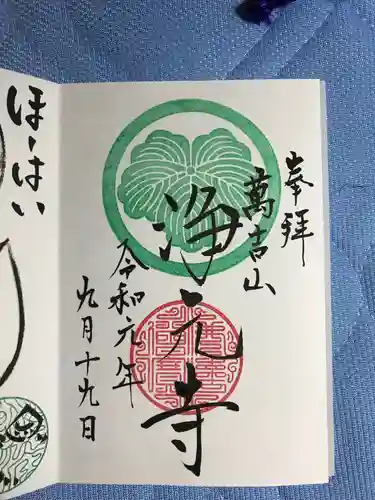 奉拝
萬吉山
浄元寺
令和元年
九月十九日
ほーはい